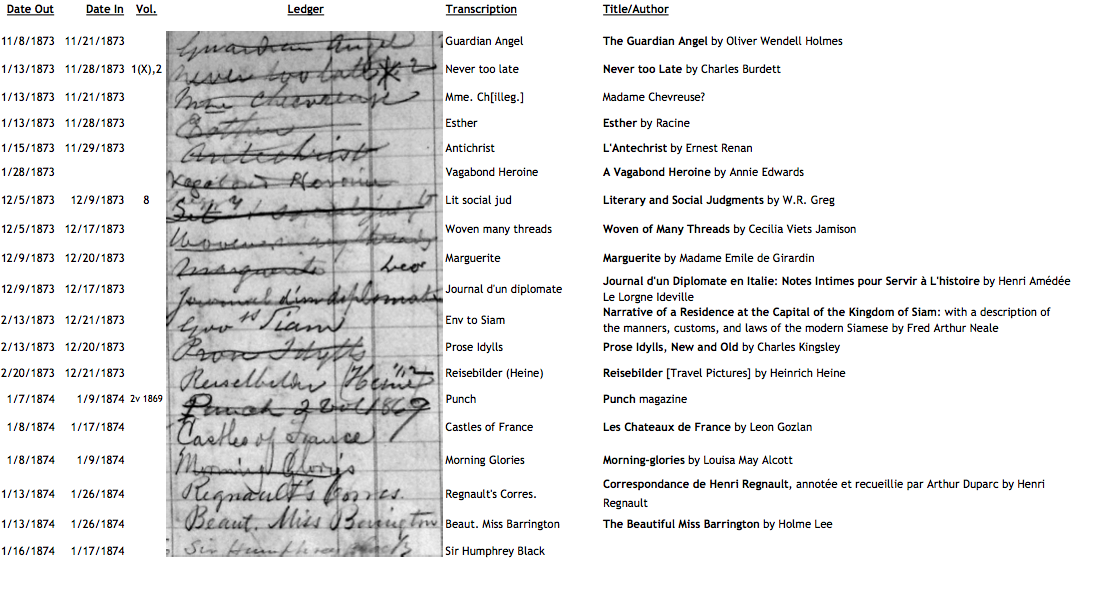 Date Out Date In Vol. Ledger Transcription Title/Author
11/8/1873 11/21/1873 Guardian Angel Guardian Angel The Guardian Angel by Oliver Wendell Holmes
1/13/1873 11/28/1873 1(X),2 Never too late X 2 Never too late Never too Late by Charles Burdett
1/13/1873 11/21/1873 Mme Chevreuse Mme. Ch[illeg.] Madame Chevreuse?
1/13/1873 11/28/1873 Esther Esther Esther by Racine
1/15/1873 11/29/1873 Antechrist Antichrist L'Antechrist by Ernest Renan
1/28/1873 Vagabond Heroine Vagabond Heroine A Vagabond Heroine by Annie Edwards
12/5/1873 12/9/1873 8 Lit social jud Literary and Social Judgments by W.R. Greg
12/5/1873 12/17/1873 Woven many threads Woven many threads Woven of Many Threads by Cecilia Viets Jamison
12/9/1873 12/20/1873 Marguerite Marguerite Marguerite by Madame Emile de Girardin
12/9/1873 12/17/1873 Journal d'un diplomate Journal d'un diplomate Journal d'un Diplomate en Italie: Notes Intimes pour Servir à L'histoire by Henri Amédée
Le Lorgne Ideville
2/13/1873 12/21/1873 Siam Env to Siam Narrative of a Residence at the Capital of the Kingdom of Siam: with a description of
the manners, customs, and laws of the modern Siamese by Fred Arthur Neale
2/13/1873 12/20/1873 Prose Idylls Prose Idylls Prose Idylls, New and Old by Charles Kingsley
2/20/1873 12/21/1873 Reisebilder (Heine) Reisebilder (Heine) Reisebilder [Travel Pictures] by Heinrich Heine
1/7/1874 1/9/1874 2v 1869 Punch 2 vol 1869 Punch Punch magazine
1/8/1874 1/17/1874 Castles of France Castles of France Les Chateaux de France by Leon Gozlan
1/8/1874 1/9/1874 Morning Glories Morning Glories Morning-glories by Louisa May Alcott
1/13/1874 1/26/1874 Regnault's Corres. Regnault's Corres. Correspondance de Henri Regnault, annotée et recueillie par Arthur Duparc by Henri
Regnault
1/13/1874 1/26/1874 Beaut. Miss Barrington Beaut. Miss Barrington The Beautiful Miss Barrington by Holme Lee
1/16/1874 1/17/1874 Sir Humphrey Black Sir Humphrey Black